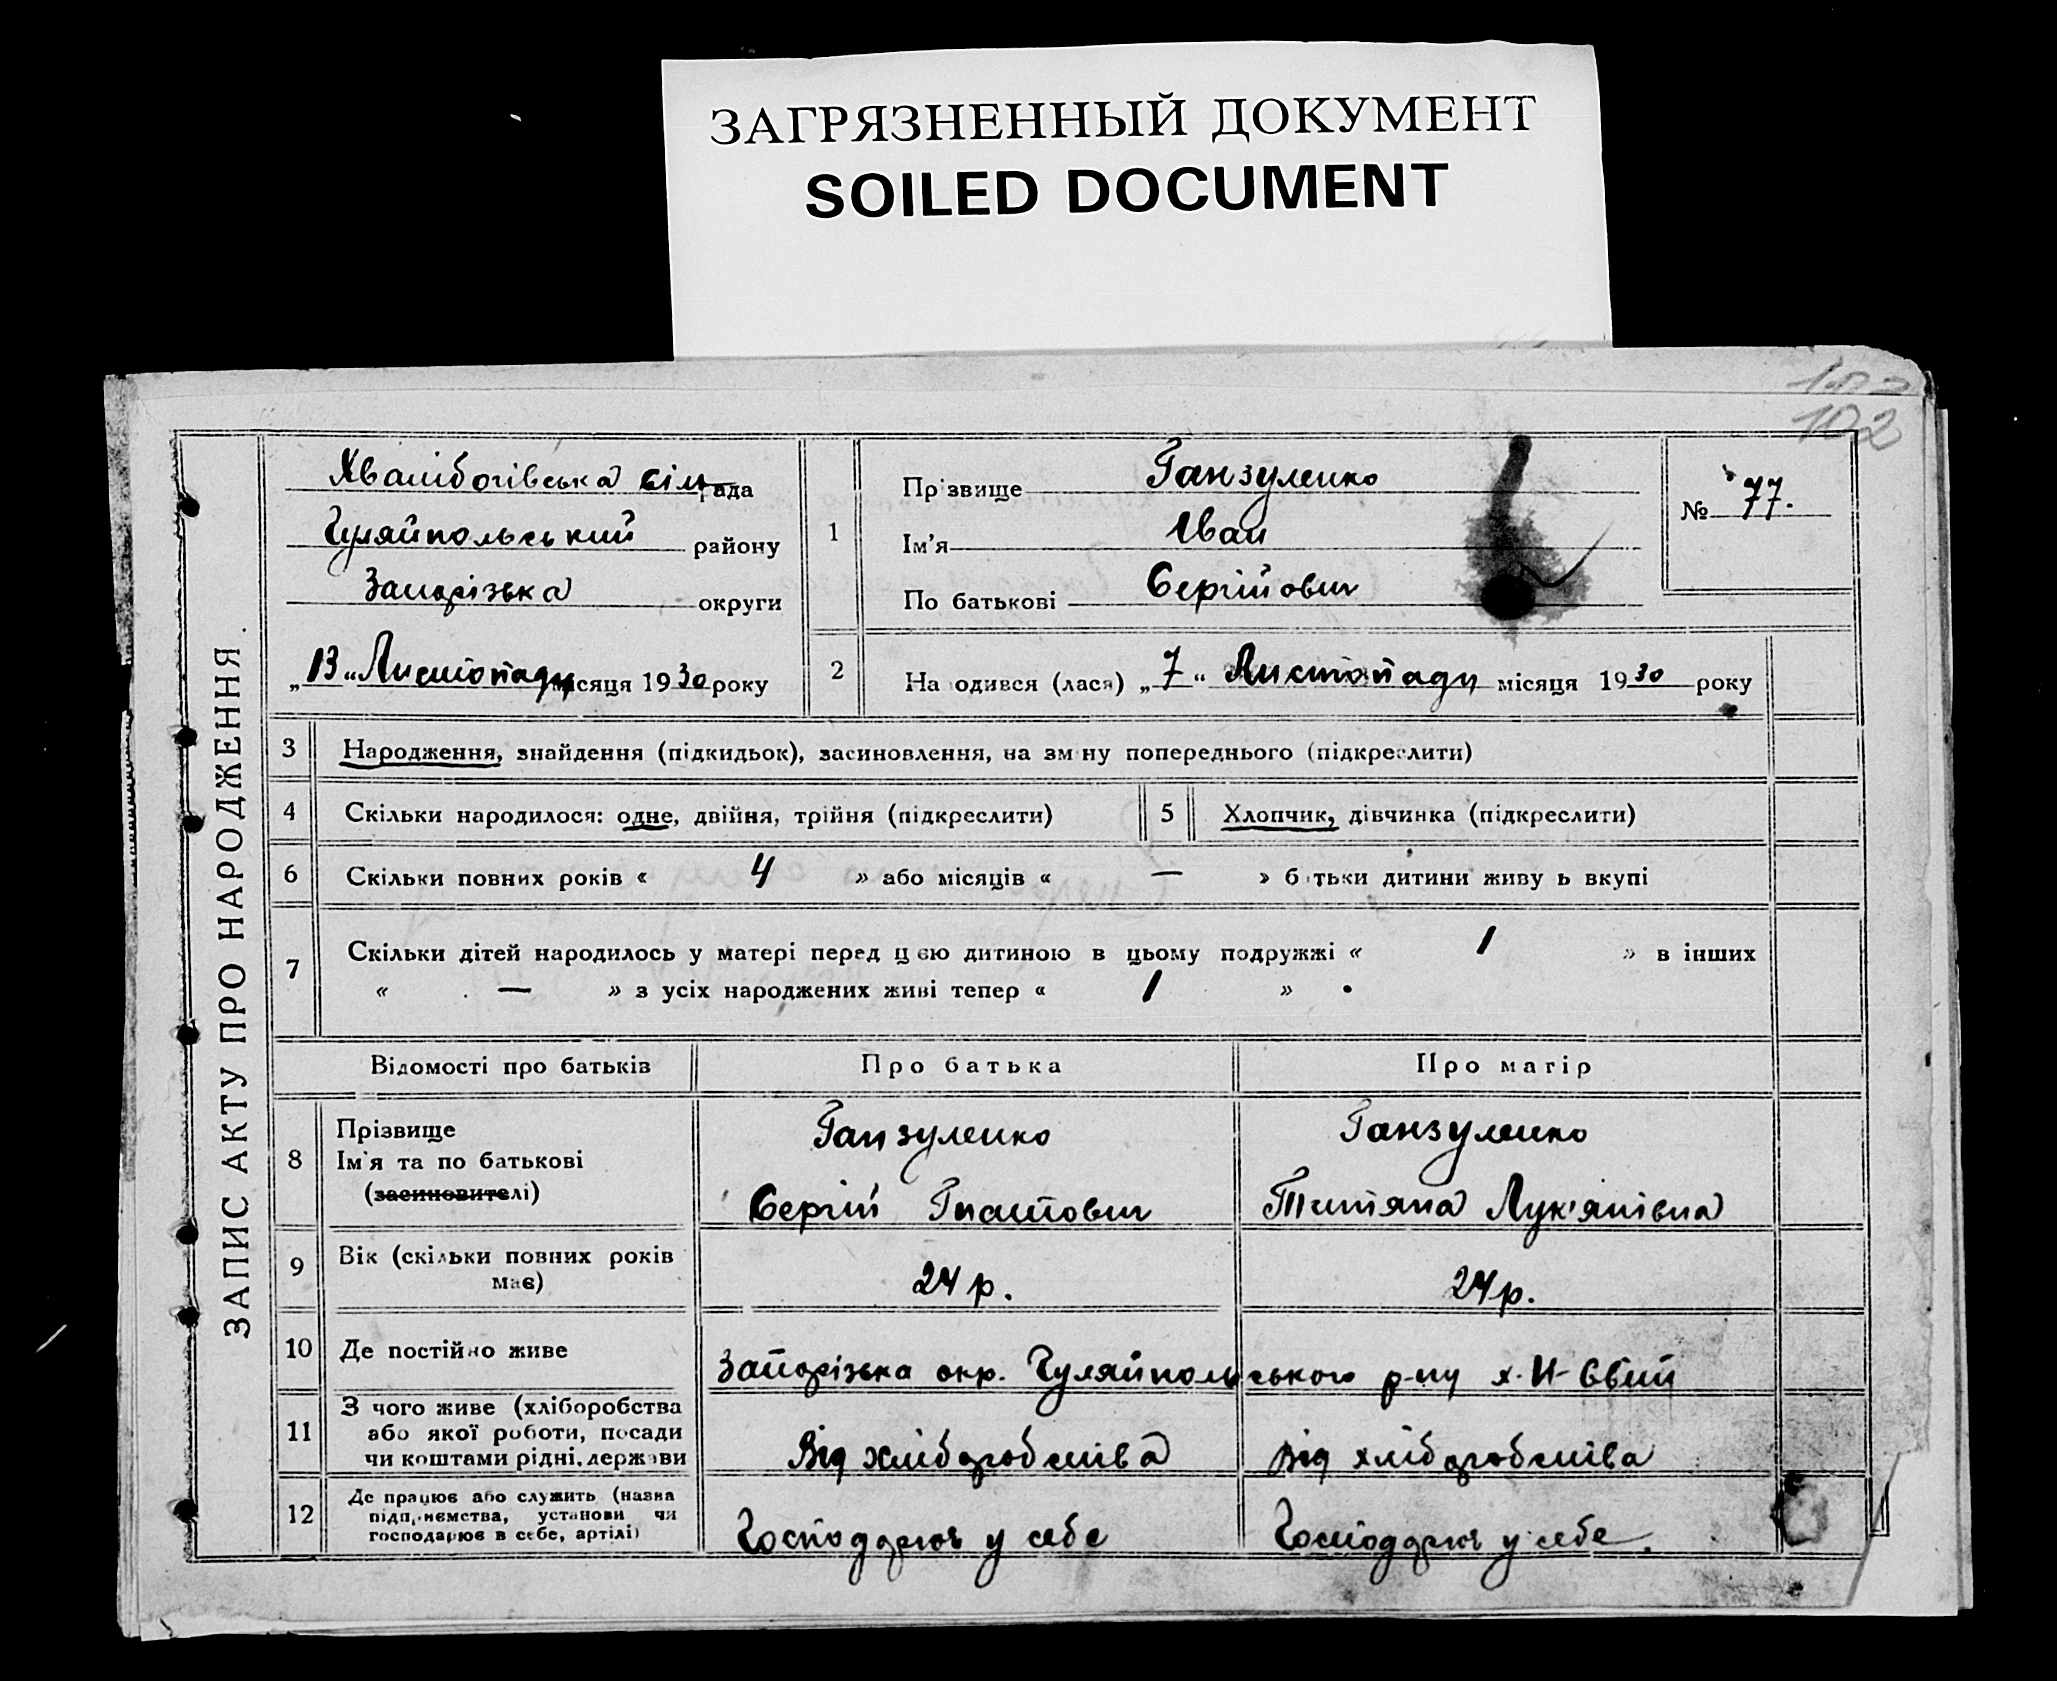 ЗАГРЯЗНЕННЫЙ ДОКУМЕНТ
SOILED DOCUMENT
102
ЗАПИС АКТУ ПРО НАРОДЖЕННЯ.
Хвалібогівська сільрада
Гуляйпольський району
Запорізька округи
„13“ Листопаду місяця 1930 року
1
Прізвище Ганзуленко
Ім'я Іван
По батькові Сергійович
№ 77.
2 На одився (лася) „7“ Листопаду місяця 1930 року
3 Народження, знайдення (підкидьок), засиновлення, на зміну попереднього (підкреслити)
4 Скільки народилося: одне, двійня, трійня (підкреслити) 5 Хлопчик, дівчинка (підкреслити)
6 Скільки повних років « 4 » або місяців « — » батьки дитини живуть вкупі
7 Скільки дітей народилось у матері перед цією дитиною в цьому подружжі « 1 » в інших
« — » з усіх народжених живі тепер « 1 »
Відомості про батьків Про батька Про матір
8 Прізвище Ганзуленко Ганзуленко
Ім'я та по батькові
(засиновителі) Сергій Гнатович Титяна Лук'янівна
9 Вік (скільки повних років має) 24 р. 24 р.
10 Де постійно живе Запорізька окр. Гуляйпольського р-ну х. Н-
11 З чого живе (хліборобства
або якої роботи, посади
чи коштами рідні, держави Від хліборобства Від хліборобства
12 Де працює або служить (назва
підприємства, установи чи
господарює в себе, артілі) Господарює у себе Господарює у себе.